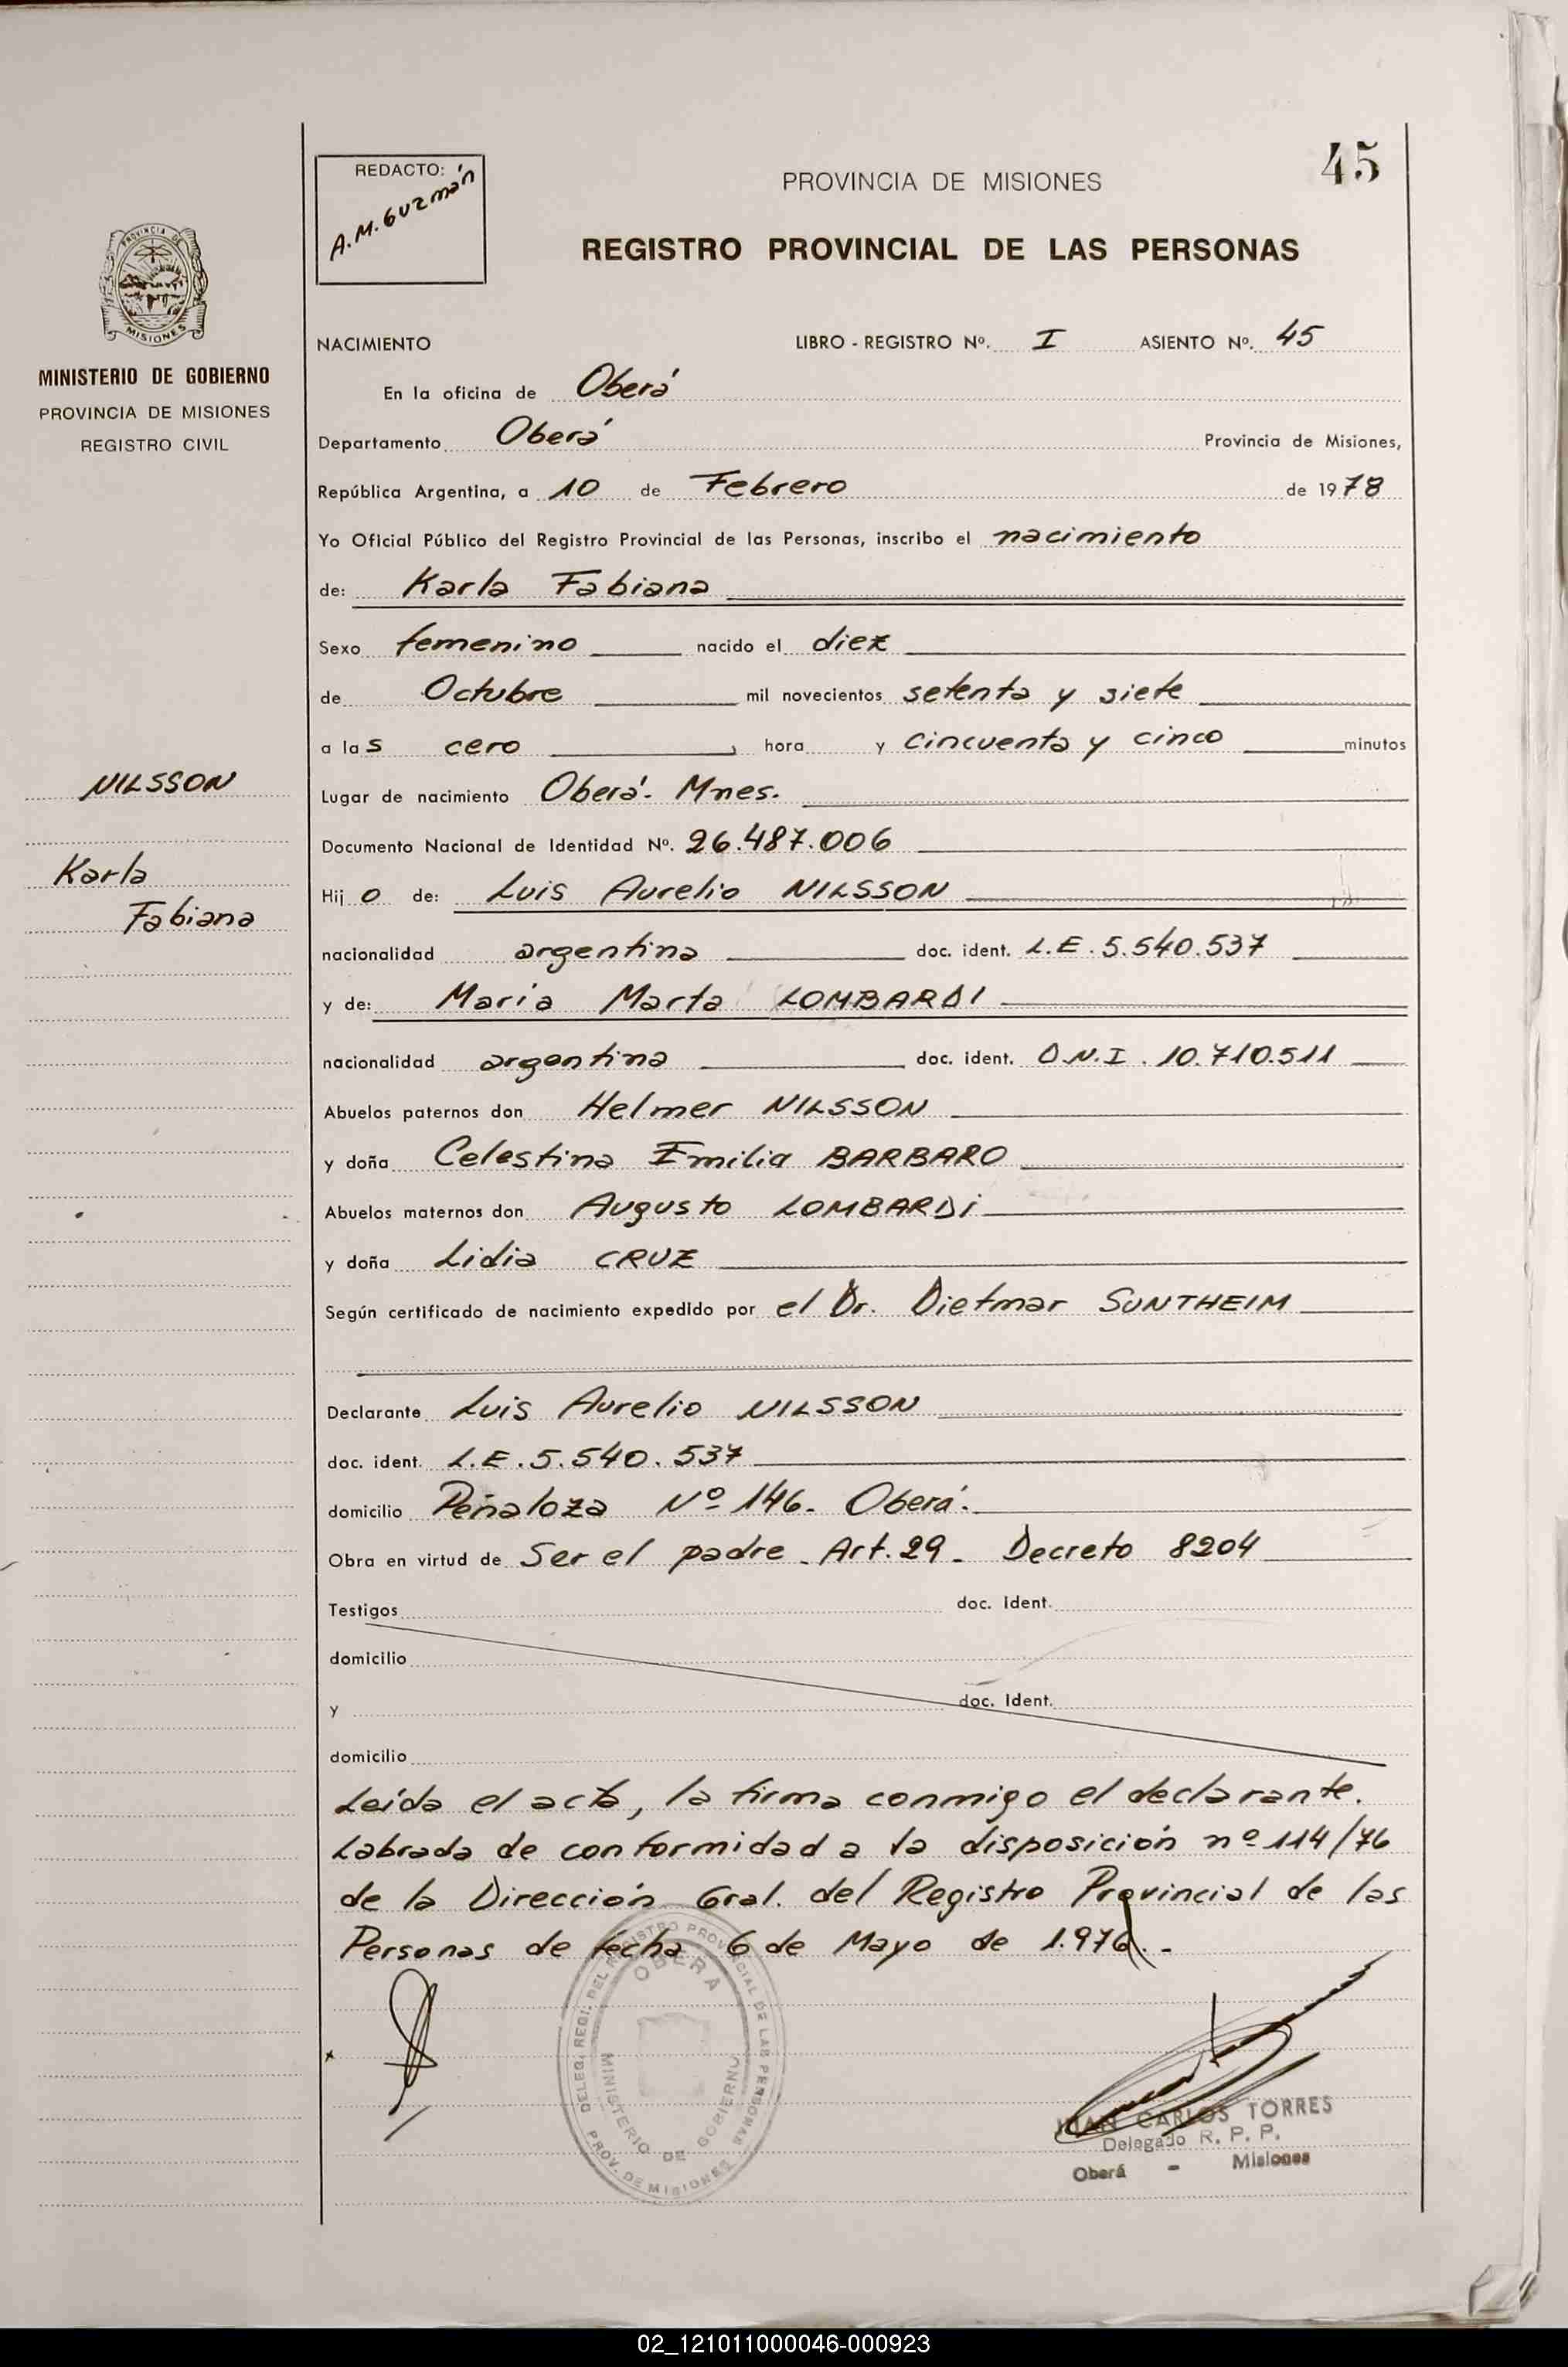 REDACTO:
A.M. Guzmán
PROVINCIA DE MISIONES
45
REGISTRO PROVINCIAL DE LAS PERSONAS
PROVINCIA DE
MISIONES
MINISTERIO DE GOBIERNO
PROVINCIA DE MISIONES
REGISTRO CIVIL
NACIMIENTO LIBRO - REGISTRO Nº. I ASIENTO Nº. 45
En la oficina de Oberá
Departamento Oberá Provincia de Misiones,
República Argentina, a 10 de Febrero de 1978
Yo Oficial Público del Registro Provincial de las Personas, inscribo el nacimiento
de: Karla Fabiana
Sexo femenino nacido el diez
de Octubre mil novecientos setenta y siete
a las cero hora y cincuenta y cinco minutos
NILSSON
Karla
Fabiana
Lugar de nacimiento Oberá- Mnes.
Documento Nacional de Identidad Nº. 26.487.006
Hijo de: Luis Aurelio NILSSON
nacionalidad argentina doc. ident. L.E. 5.540.537
y de: Maria Marta LOMBARDI
nacionalidad argentina doc. ident. D.N.I. 10.710.511
Abuelos paternos don Helmer NILSSON
y doña Celestina Emilia BARBARO
Abuelos maternos don Augusto LOMBARDi
y doña Lidia CRUZ
Según certificado de nacimiento expedido por el Dr. Dietmar SUNTHEIM
Declarante Luis Aurelio NILSSON
doc. ident. L.E. 5.540.537
domicilio Peñaloza Nº 146- Oberá.
Obra en virtud de Ser el padre - Art. 29 - Decreto 8204
Testigos doc. Ident.
domicilio
y doc. Ident.
domicilio
Leída el acta, la firma conmigo el declarante.
Labrada de conformidad a la disposición nº 114/76
de la Dirección Gral. del Registro Provincial de las
Personas de fecha 6 de Mayo de 1.976.-
DELEG. REGI. DEL REGISTRO PROVINCIAL DE LAS PERSONAS
OBERA
MINISTERIO DE GOBIERNO
PROV. DE MISIONES
JUAN CARLOS TORRES
Delegado R. P. P.
Oberá - Misiones
02_121011000046-000923